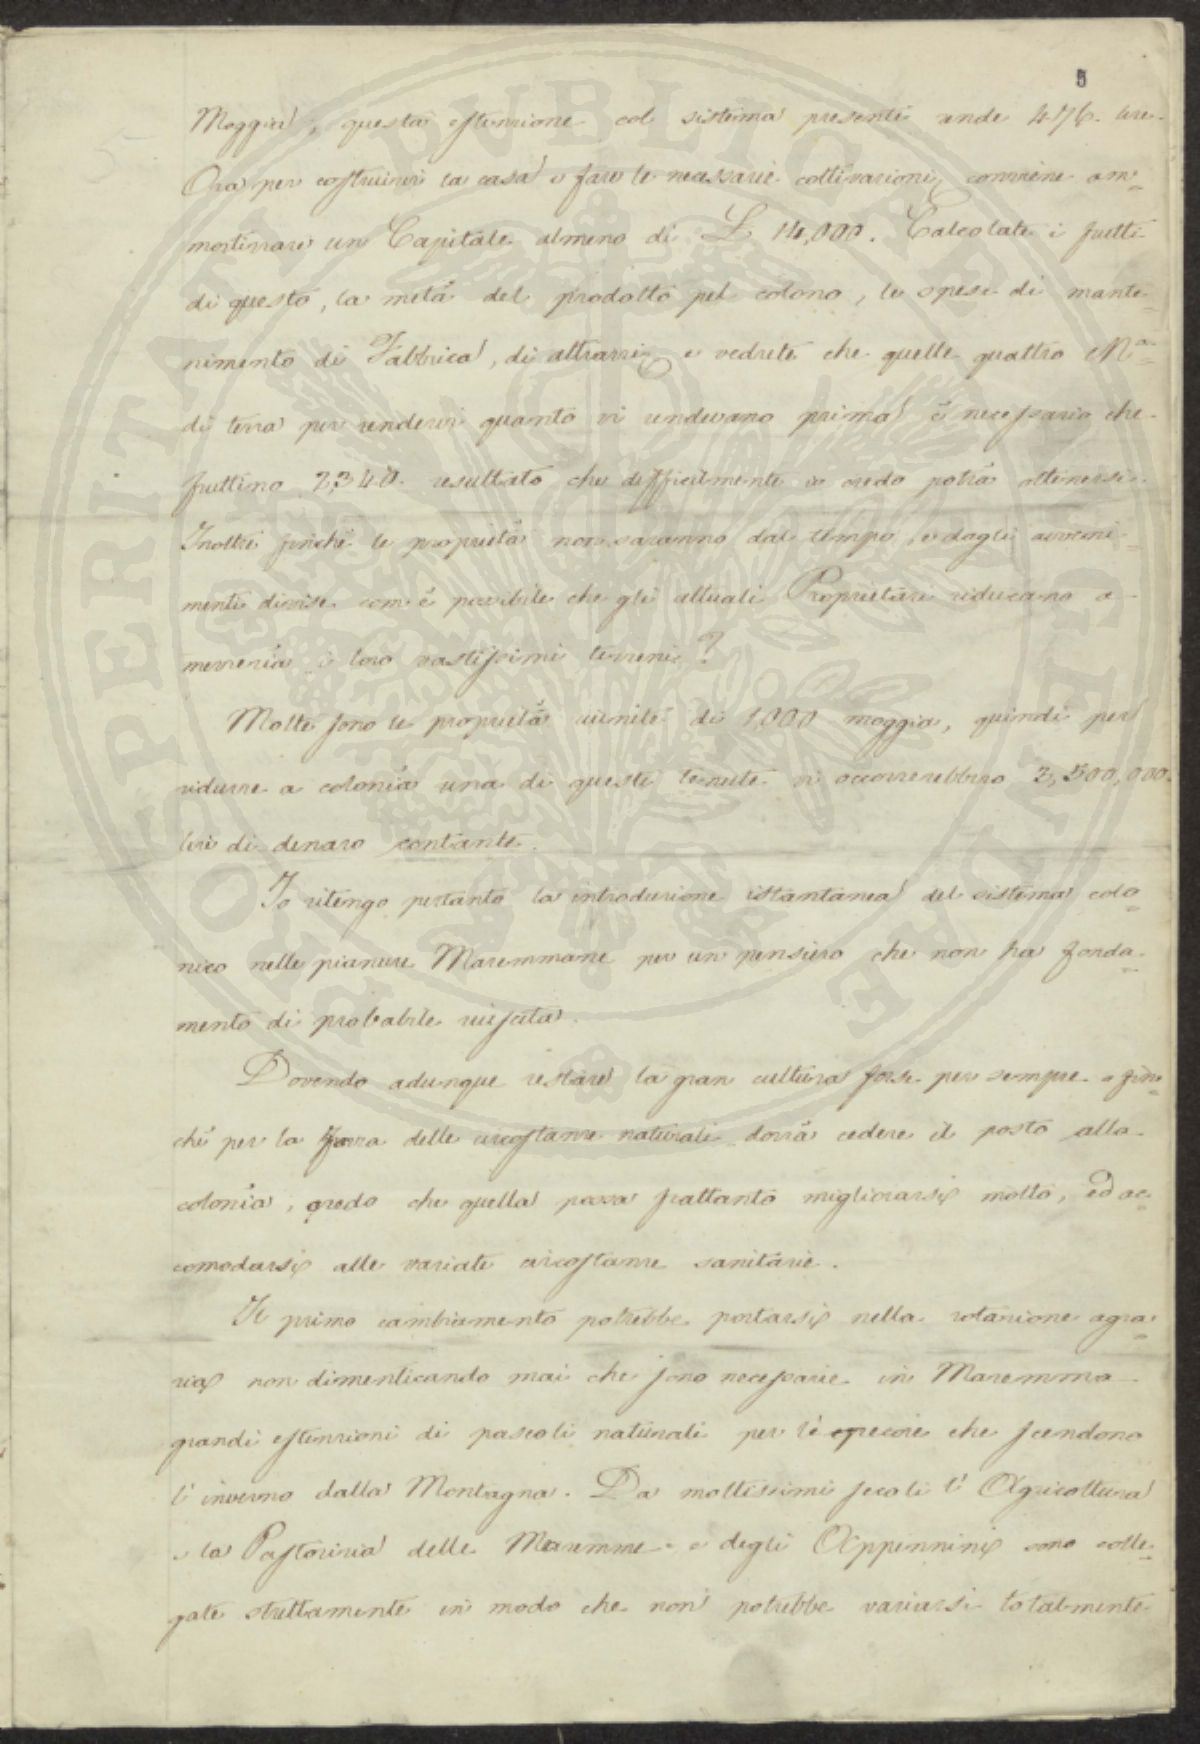 5
Moggia, questa estensione col sistema presente rende 476. lire.
Ora per costruirvi la casa e fare le necessarie coltivazioni, conviene am=
mortizzare un Capitale almeno di £ 14,000. Calcolate i frutti
di questo, la metà del prodotto pel colono, le spese di mante=
nimento di Fabbrica, di attrazzi, e vedrete che quelle quattro Mª
di terra per rendervi quanto vi rendevano prima è necessario che
fruttino 2,340. resultato che difficilmente io credo potrà ottenersi.
Inoltre finchè le proprietà non saranno dal tempo, e dagli avveni=
menti divise com'è possibile che gli attuali Proprietari riducano a
mezzeria i loro vastissimi terreni?
Molte sono le proprietà riunite di 1,000 moggia, quindi per
ridurre a colonia una di queste tenute vi occorrerebbero 3,500,000.
lire di denaro contante.
Io ritengo pertanto la introduzione istantanea del sistema colo=
nico nelle pianure Maremmane per un pensiero che non ha fonda=
mento di probabile riuscita.
Dovendo adunque restare la gran cultura forse per sempre o fin=
chè per la forza delle circostanze naturali dovrà cedere il posto alla
colonia, credo che quella possa frattanto migliorarsi molto, ed ac=
comodarsi alle variate circostanze sanitarie.
Il primo cambiamento potrebbe portarsi nella rotazione agra=
ria, non dimenticando mai che sono necessarie in Maremma
grandi estensioni di pascoli naturali per le pecore che scendono
l'inverno dalla Montagna. Da moltissimi secoli l'Agricoltura
e la Pastorizia delle Maremme e degli Appennini sono colle=
gate strettamente in modo che non potrebbe variarsi totalmente
PROSPERITATI PUBLICAE AUGENDAE